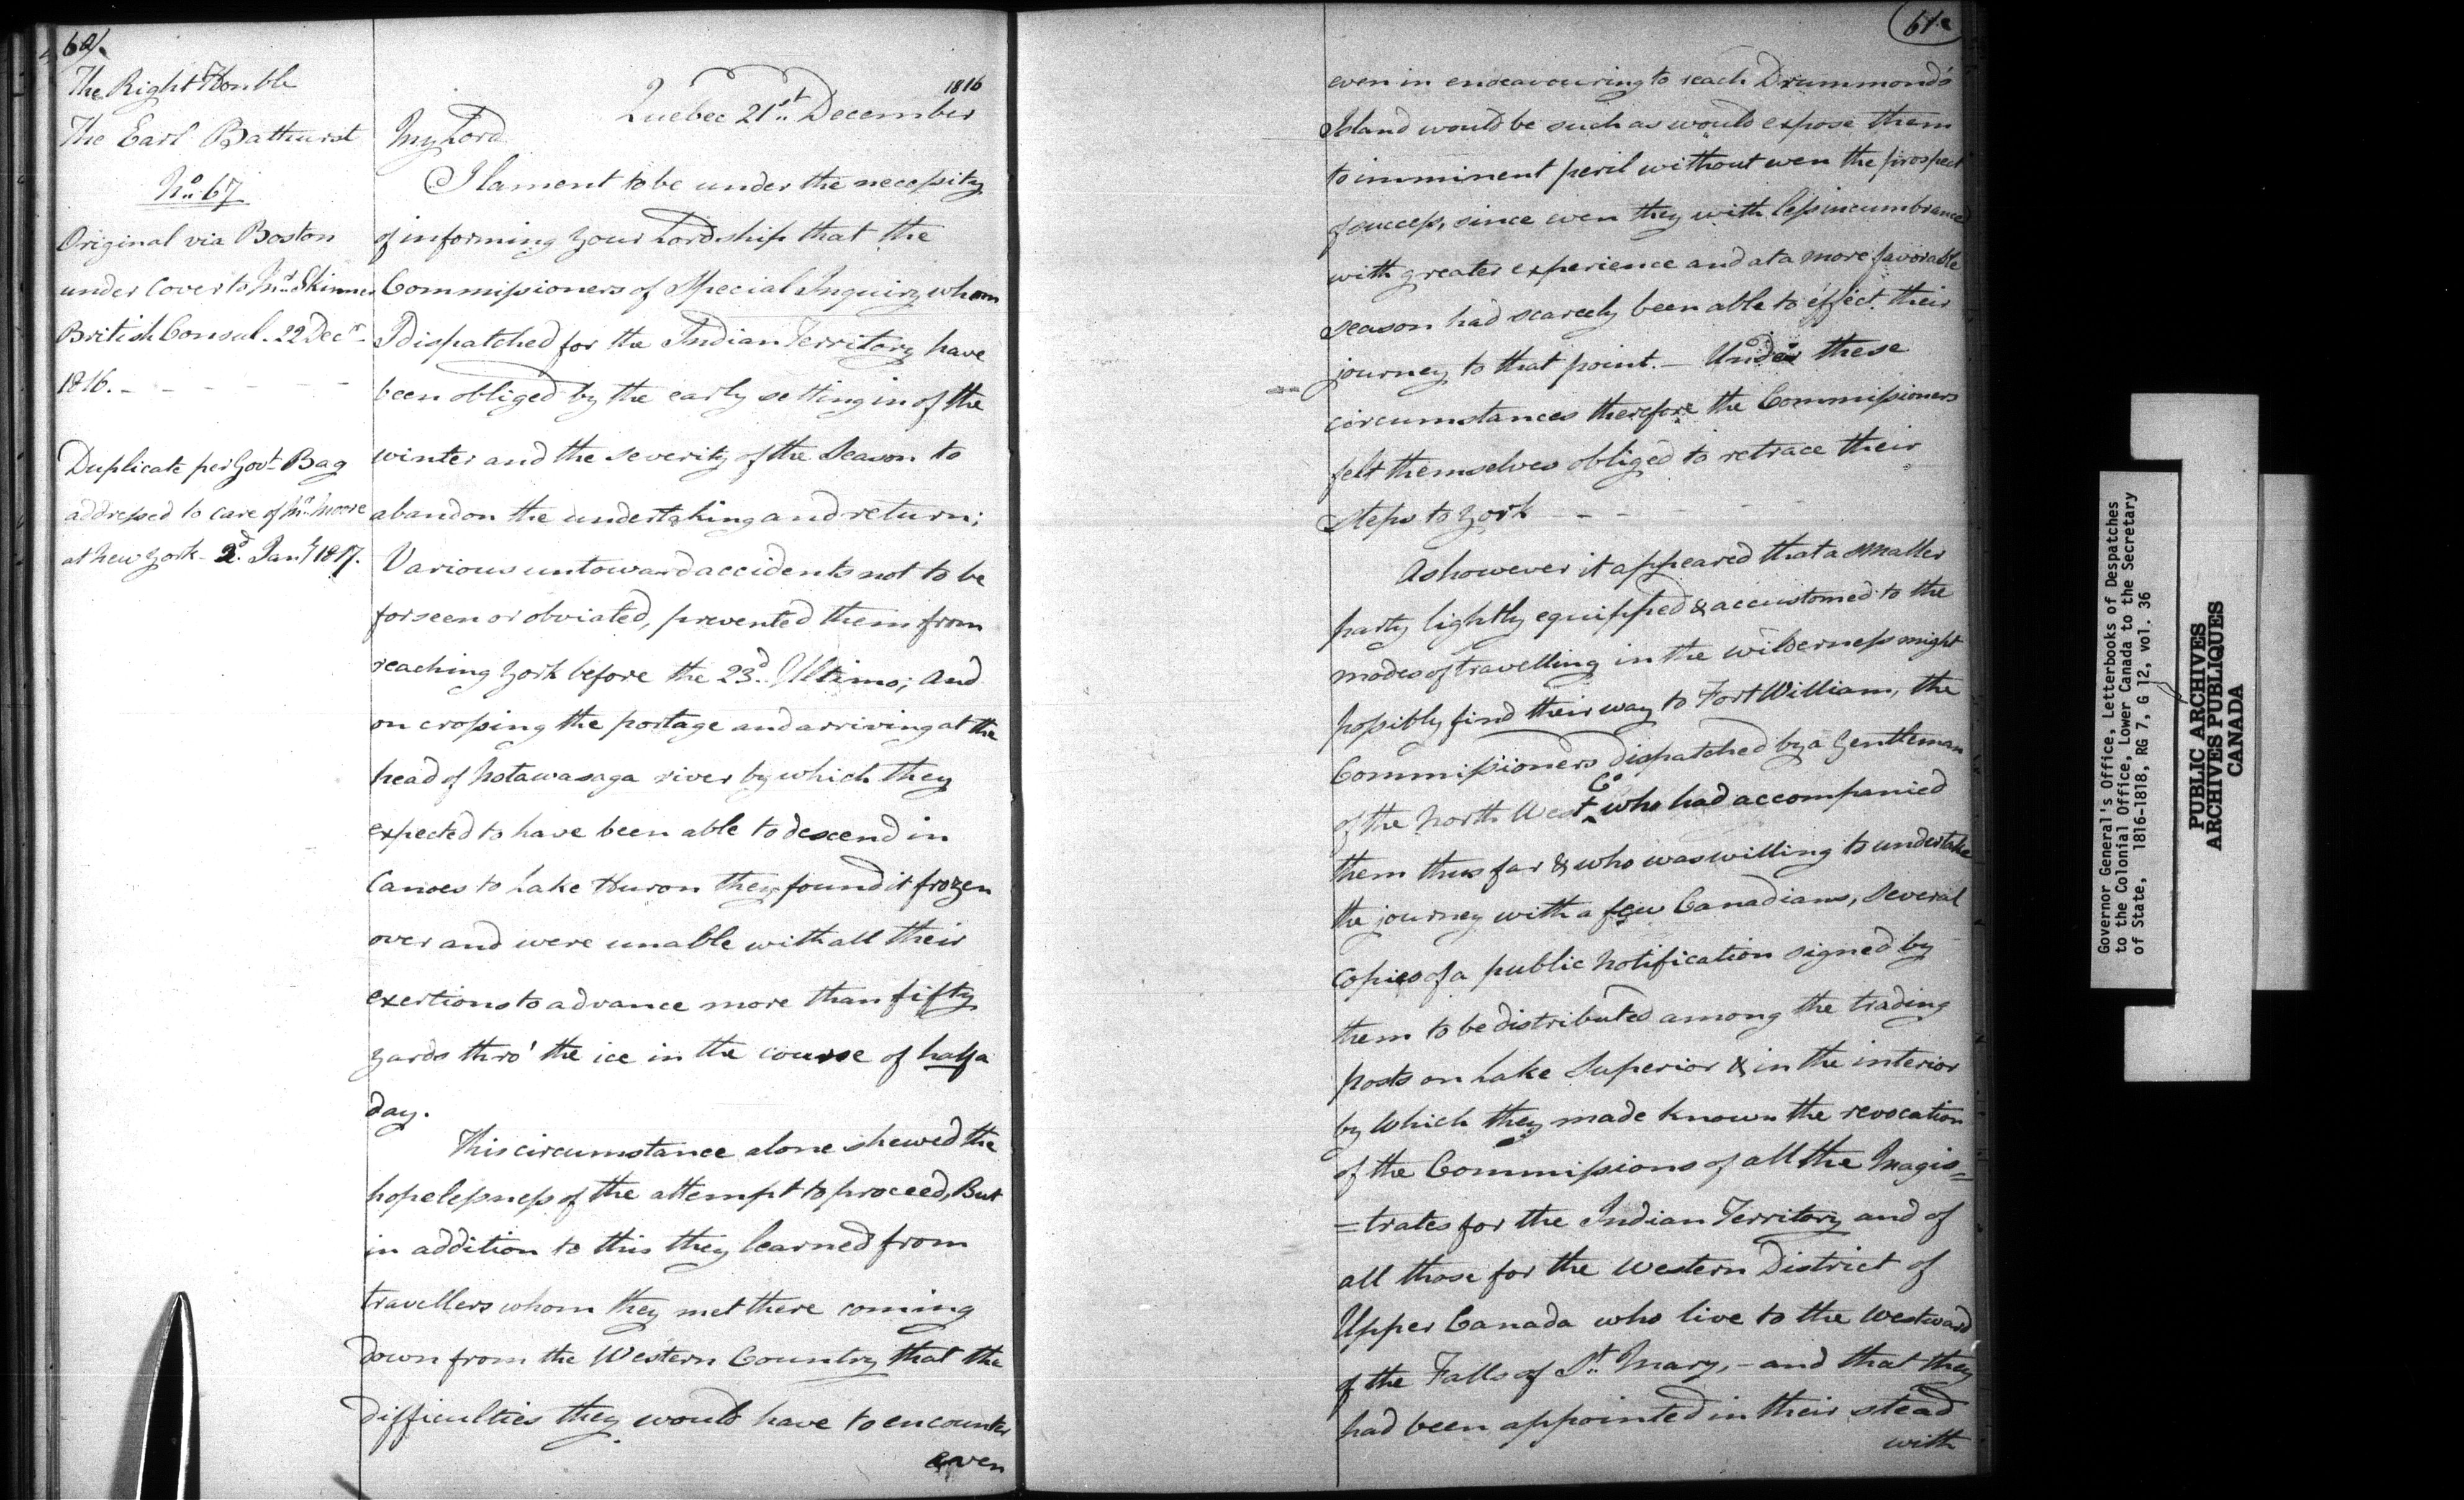 60.
The Right Honble
The Earl Bathurst
No. 67
Original via Boston
under Cover to Mr. Skinner
British Consul. 22 Decr.
1816. -
Duplicate per Govt. Bag
addressed to care of Mr. Moore
at New York - 2d. Jany 1817.
Quebec 21st. December 1816
My Lord
I lament to be under the necessity
of informing your Lordship that the
Commissioners of Special Inquiry whom
I dispatched for the Indian Territory have
been obliged by the early setting in of the
winter and the severity of the Season to
abandon the undertaking and return;
Various untoward accidents not to be
forseen or obviated, prevented them from
reaching York before the 23d. Ultimo; And
on crossing the portage and arriving at the
head of Notawasaga river by which they
expected to have been able to descend in
Canoes to Lake Huron they found it frozen
over and were unable with all their
exertions to advance more than fifty
yards thro' the ice in the course of half a
day.
This circumstance alone shewed the
hopelessness of the attempt to proceed, But
in addition to this they learned from
travellers whom they met there coming
down from the Western Country that the
difficulties they would have to encounter
even
61.
even in endeavouring to reach Drummond's
Island would be such as would expose them
to imminent peril without even the prospect
of success, since even they with less incumbrance
with greater experience and at a more favorable
season had scarcely been able to effect their
journey to that point. - Under these
circumstances therefore the Commissioners
felt themselves obliged to retrace their
steps to York - - -
As however it appeared that a smaller
party lightly equipped & accustomed to the
modes of travelling in the wilderness might
possibly find their way to Fort William, the
Commissioners dispatched by a Gentleman
of the North West Co. who had accompanied
them thus far & who was willing to undertake
the journey with a few Canadians, Several
Copies of a public Notification signed by
them to be distributed among the trading
posts on Lake Superior & in the interior
by which they made known the revocation
of the Commissions of all the Magis=
=trates for the Indian Territory and of
all those for the Western District of
Upper Canada who live to the Westward
of the Falls of St. Mary, - and that they
had been appointed in their stead
with
Governor General's Office, Letterbooks of Despatches
to the Colonial Office, Lower Canada to the Secretary
of State, 1816-1818, RG 7, G 12, vol. 36
PUBLIC ARCHIVES
ARCHIVES PUBLIQUES
CANADA